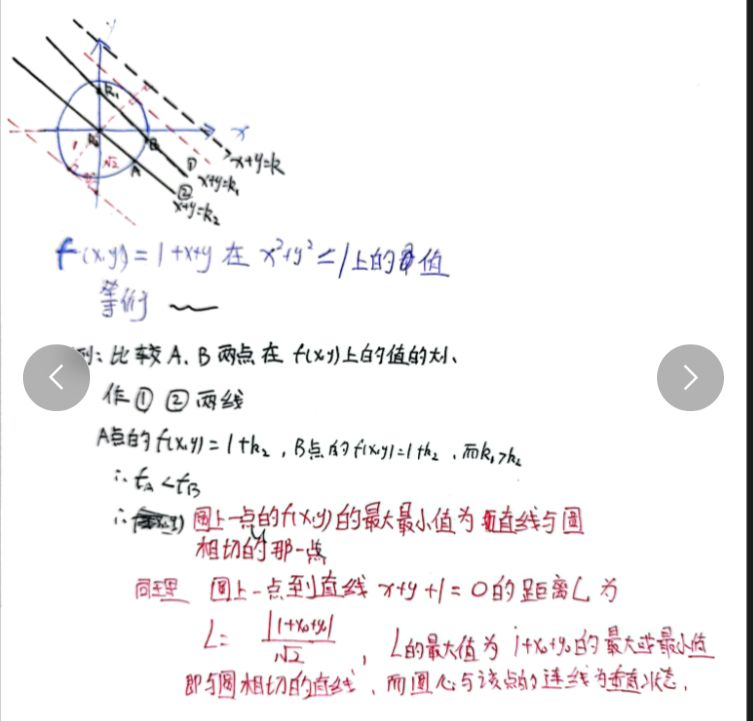 y
x
k₁
k₂
1
√2
A
B
①
②
x+y=k
x+y=k₁
x+y=k₂
f(x,y)=1+x+y 在 x²+y²≤1上的最值
等价于
例:比较A、B两点在f(x,y)上的值的大小
作① ②两线
A点的f(x,y)=1+k₂,B点的f(x,y)=1+k₂,而k₁>k₂
∴fA<fB
∴ 圆上一点的f(x,y)的最大最小值为 直线与圆
相切的那一点
同理 圆上一点到直线 x+y+1=0的距离L为
L=|1+x₀+y₀|/√2,L的最大值为1+x₀+y₀的最大或最小值
即与圆相切的直线,而圆心与该点的连线为垂直状态.